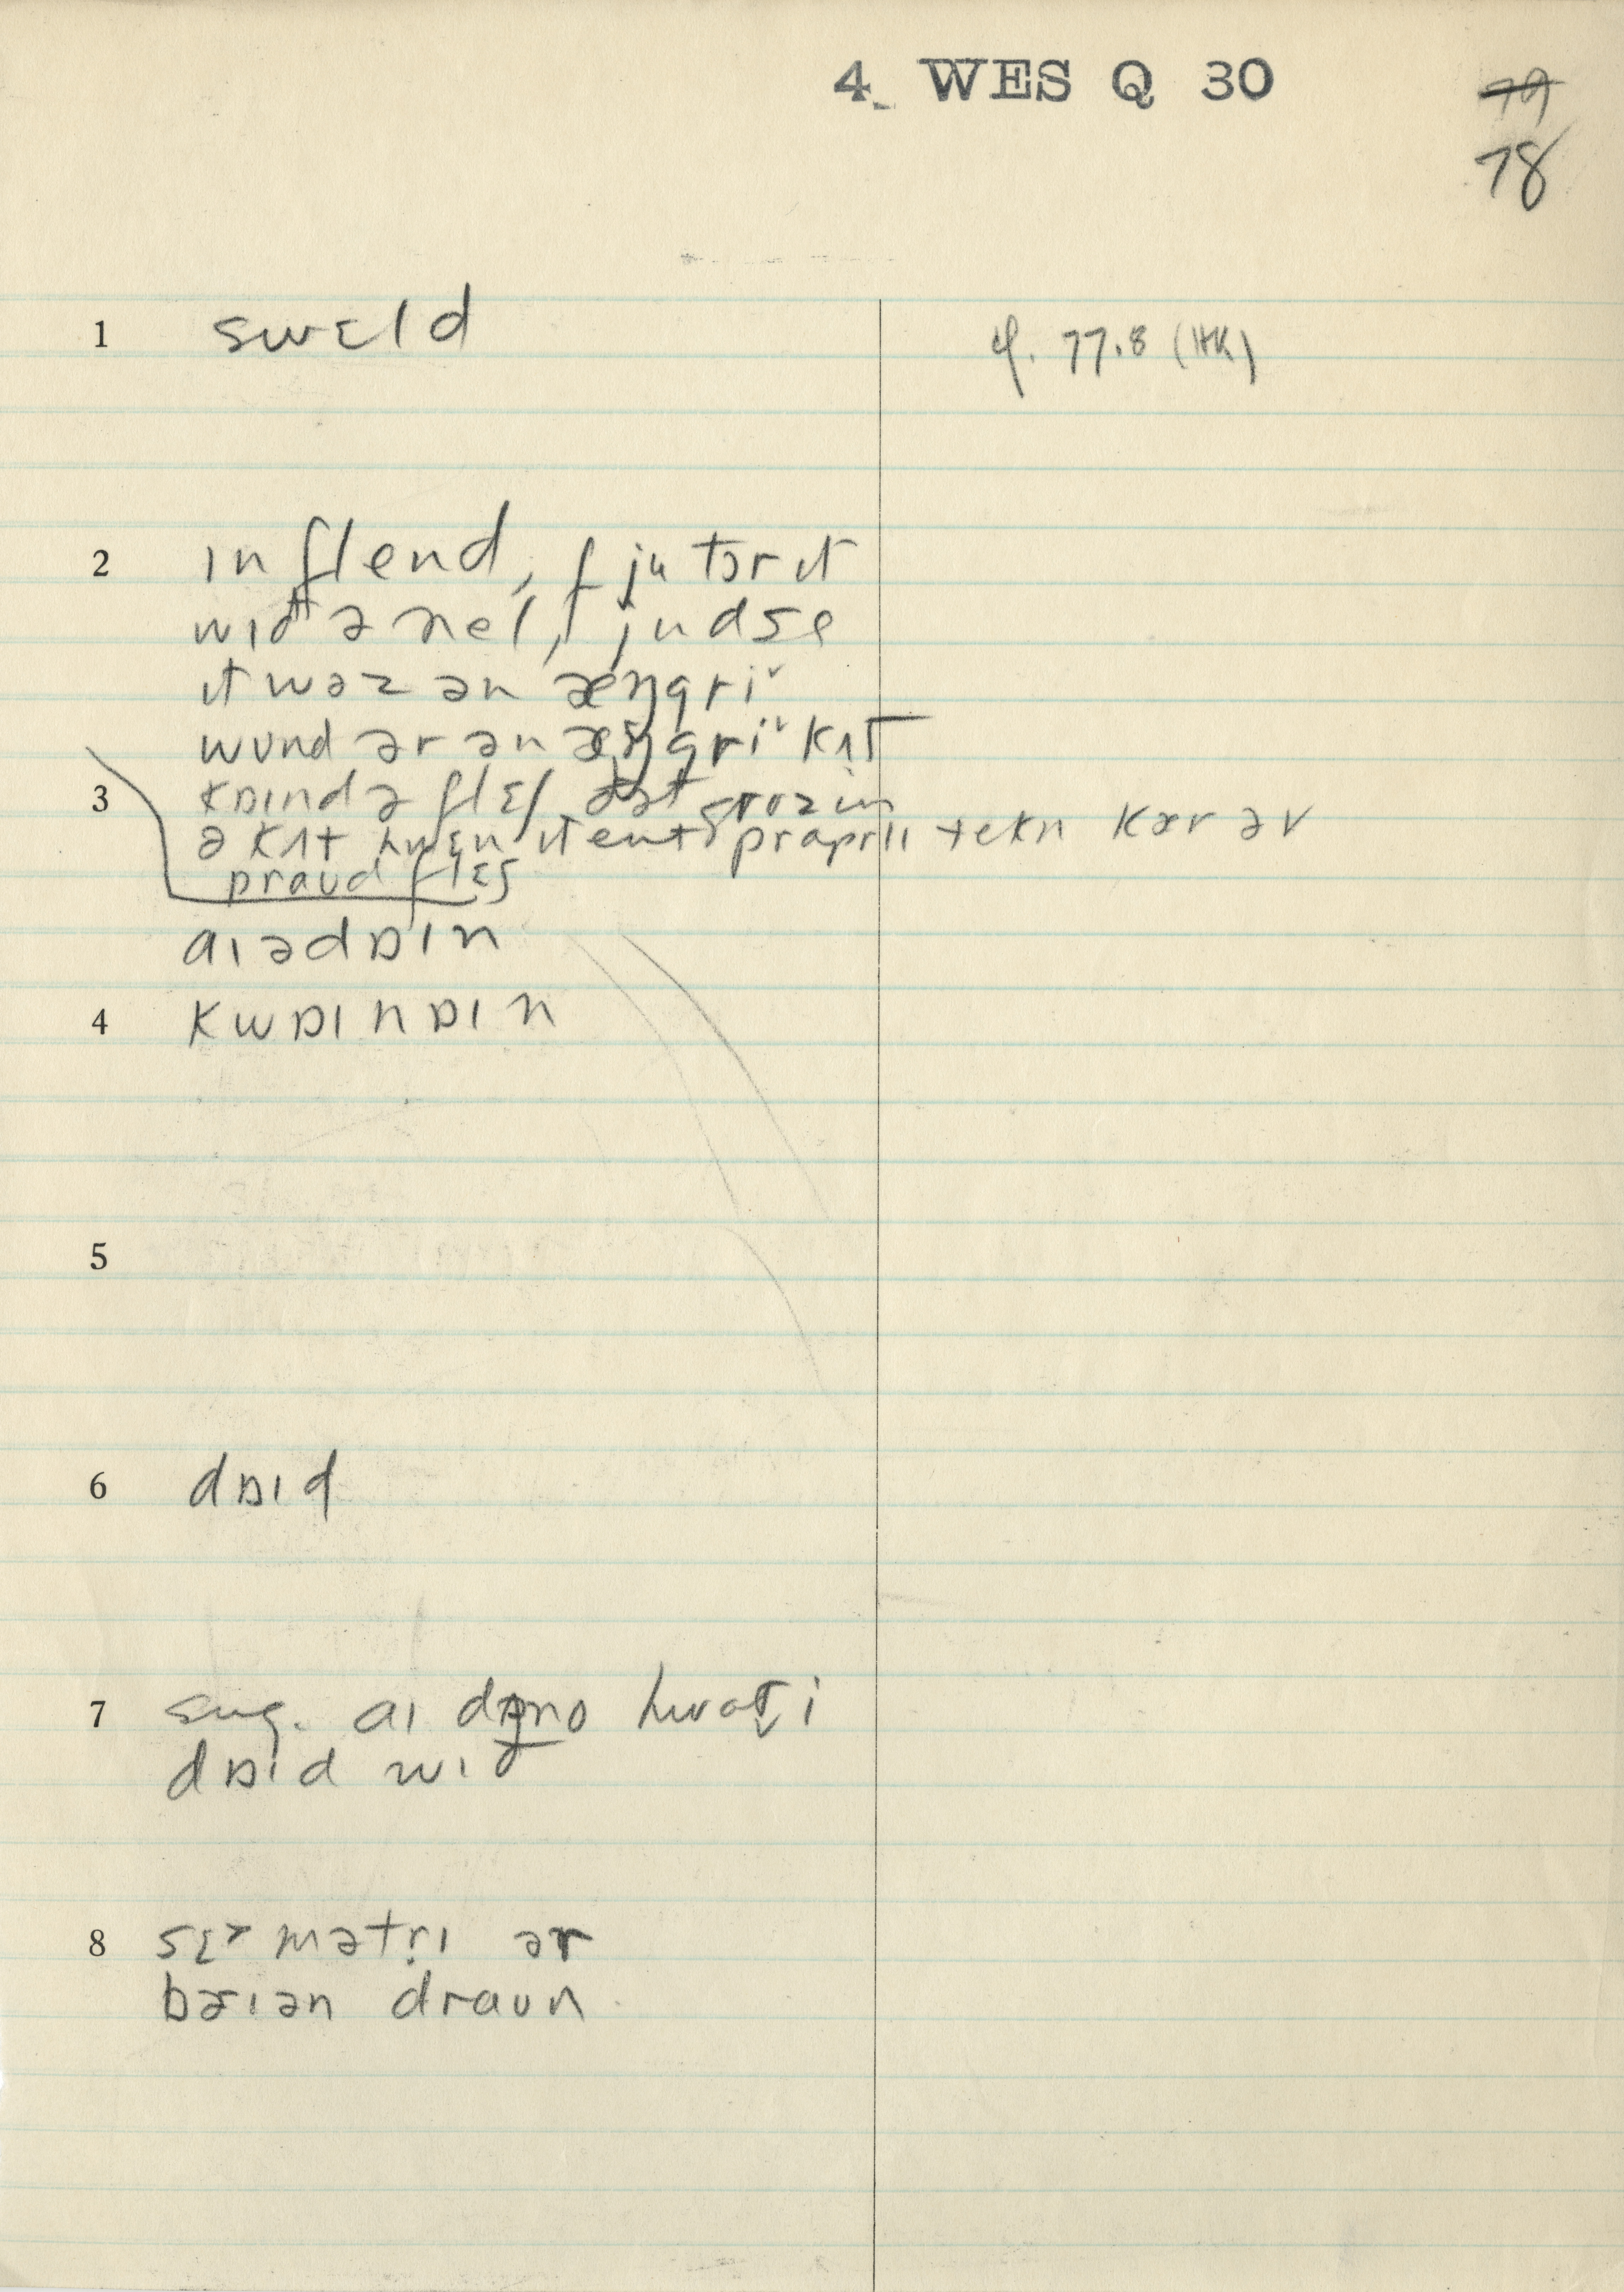 4 WES Q 30
79
78
1 swɛld cf. 77.8 (HK)
2 ɪn flend, ɪf ju tɔr ɪt
wɪð ə nel, judse
ɪt wəz ən æŋgri˅
wund ər ən æŋgri˅ kʌt
3 kɒɪnd ə flɛʃ ðət groz in
ə kʌt hwɛn ɪt ent prɑprlɪ tekn kær əv
praud flɛʃ
aɪədɒɪn
4 kwɒɪnɒɪn
5
6 dɒɪd
7 sug. aɪ dono hwət i
dɒɪd wɪð
8 sɛmətri ər
bɛrɪən graun